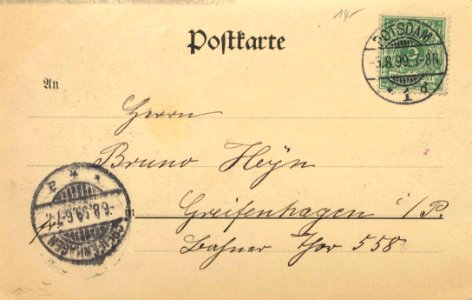 14-
Postkarte
POTSDAM
5.8.99.7-8N.
* 1 d
An
Herrn
Bruno Heyn
in Greifenhagen i/P.
Bahner Thor 558
GREIFENHAGEN
6.8.99.6-7V.